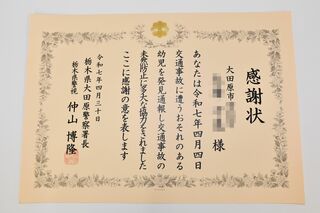 感謝状
大田原市
様
あなたは令和七年四月四日
交通事故に遭うおそれのある
幼児を発見通報し交通事故の
未然防止に多大な協力をされました
ここに感謝の意を表します
令和七年四月三十日
栃木県大田原警察署長
栃木県警視 仲山博隆